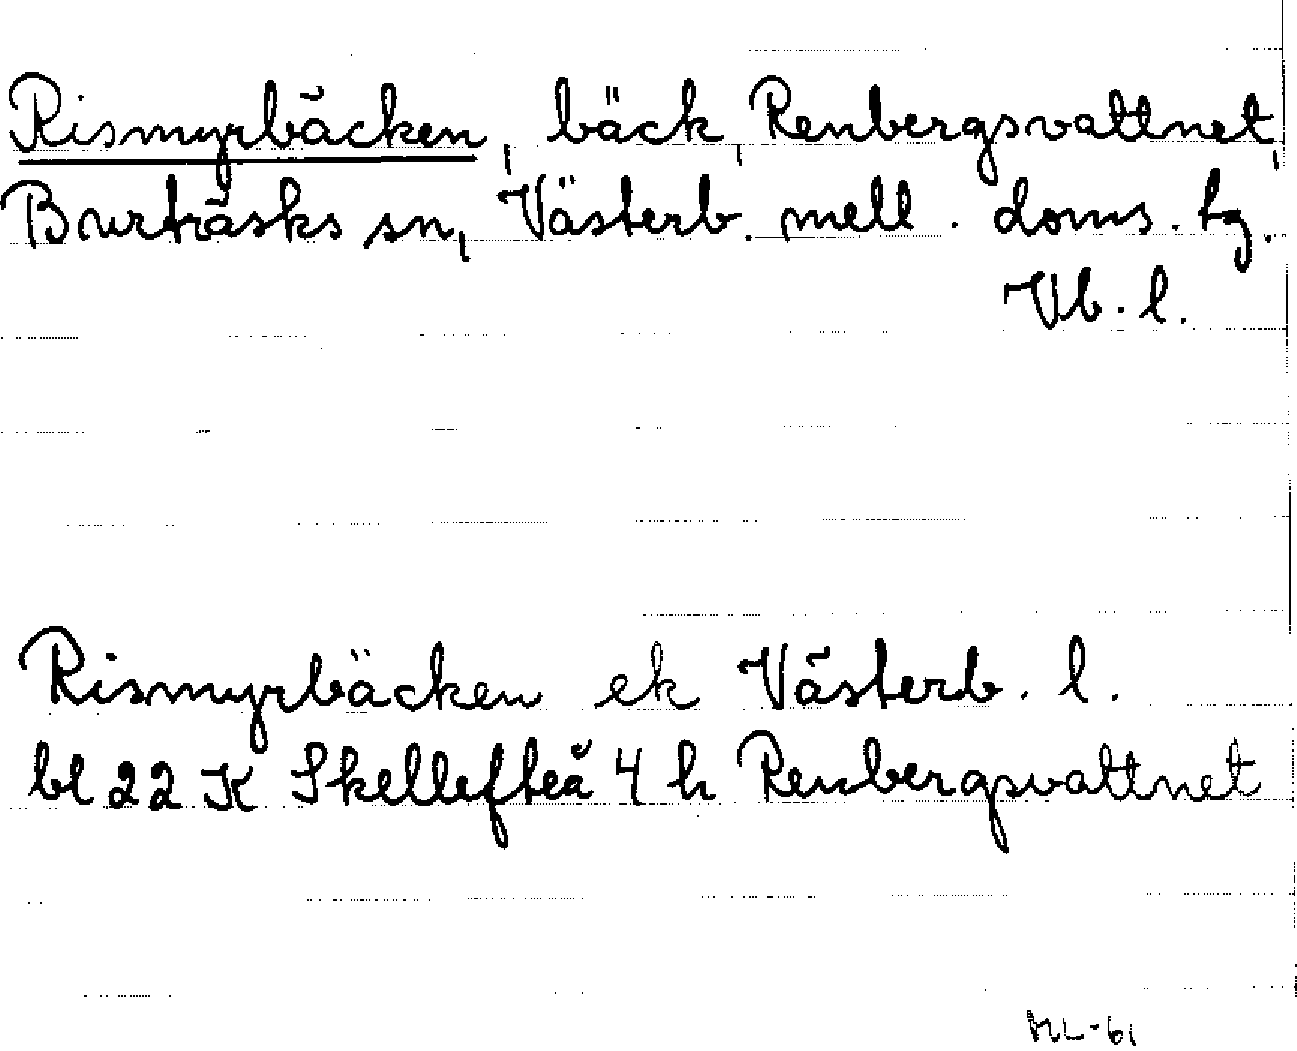 Rismyrbäcken, bäck, Renbergsvattnet,
Burträsks sn, Västerb. mell. doms. tg.
Vb. l.
Rismyrbäcken ek Västerb. l.
bl 22 K Skellefteå 4 h Renbergsvattnet